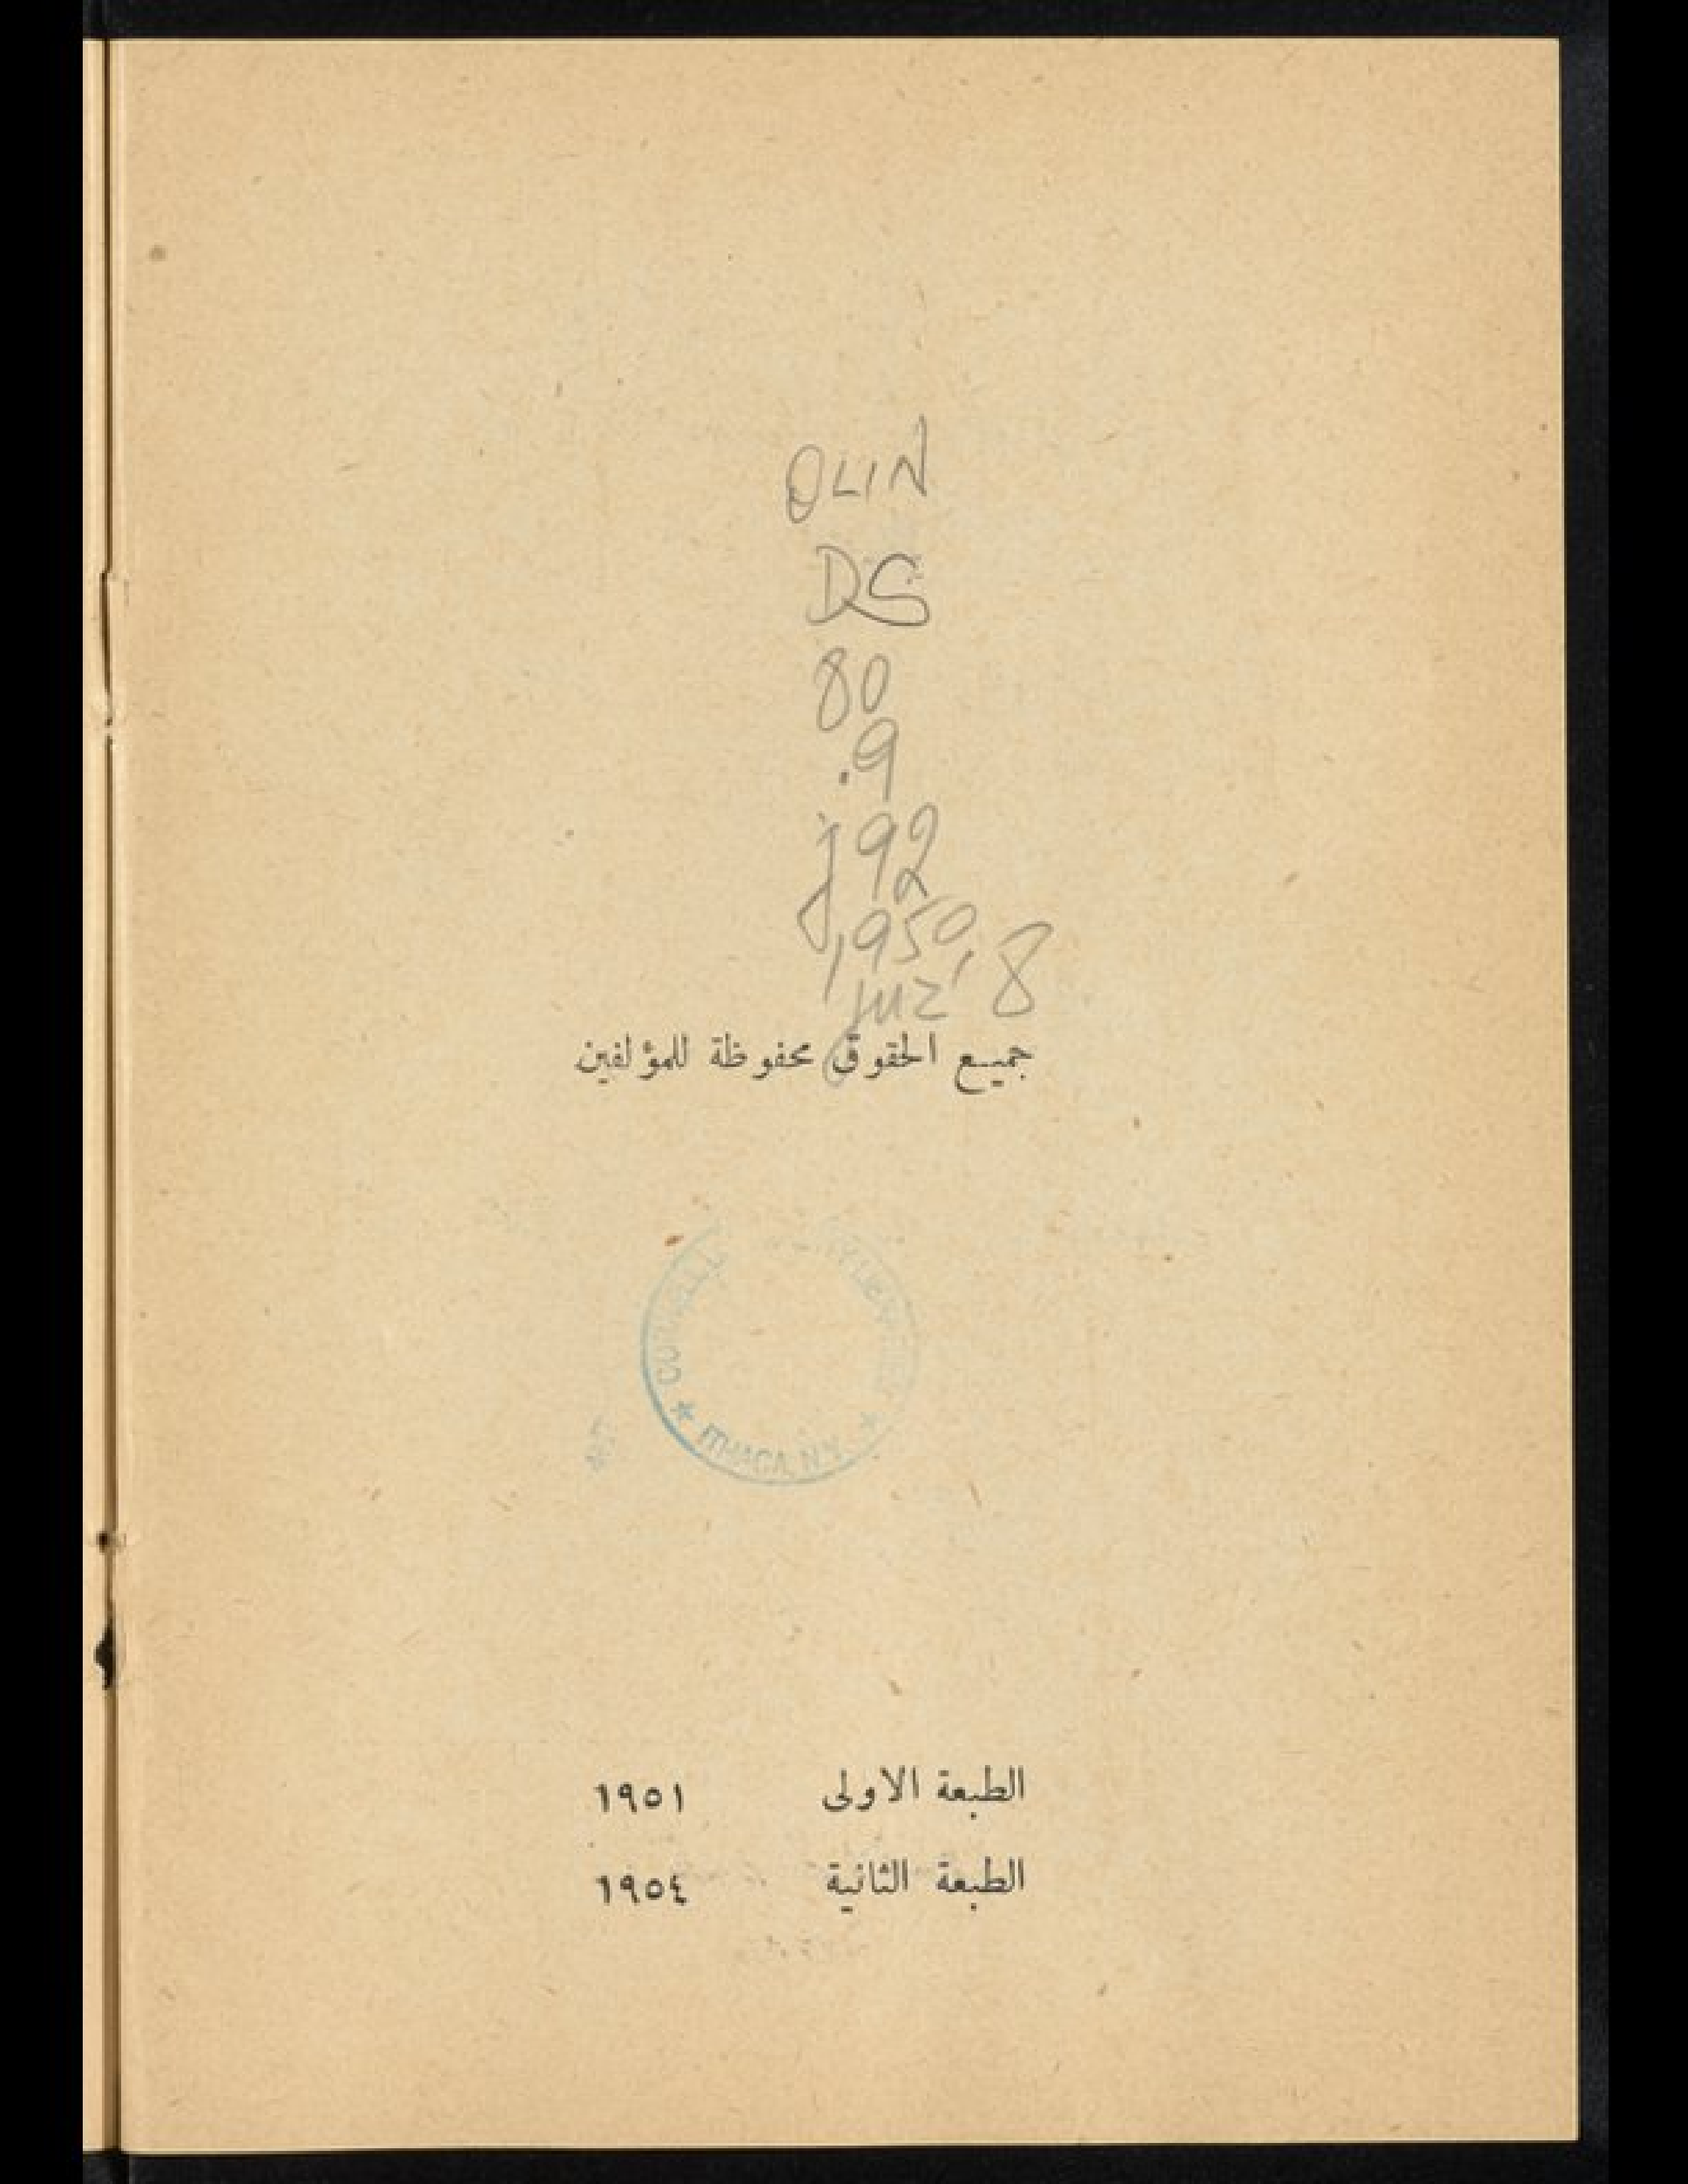 OLIN
DS
80
.9
J92
1950
juz' 8
جميع الحقوق محفوظة للمؤلفين
CORNELL
ITHACA, N.Y.
الطبعة الاولى ١٩٥١
الطبعة الثانية ١٩٥٤